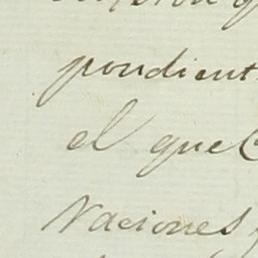 pondient
el que
Naciones